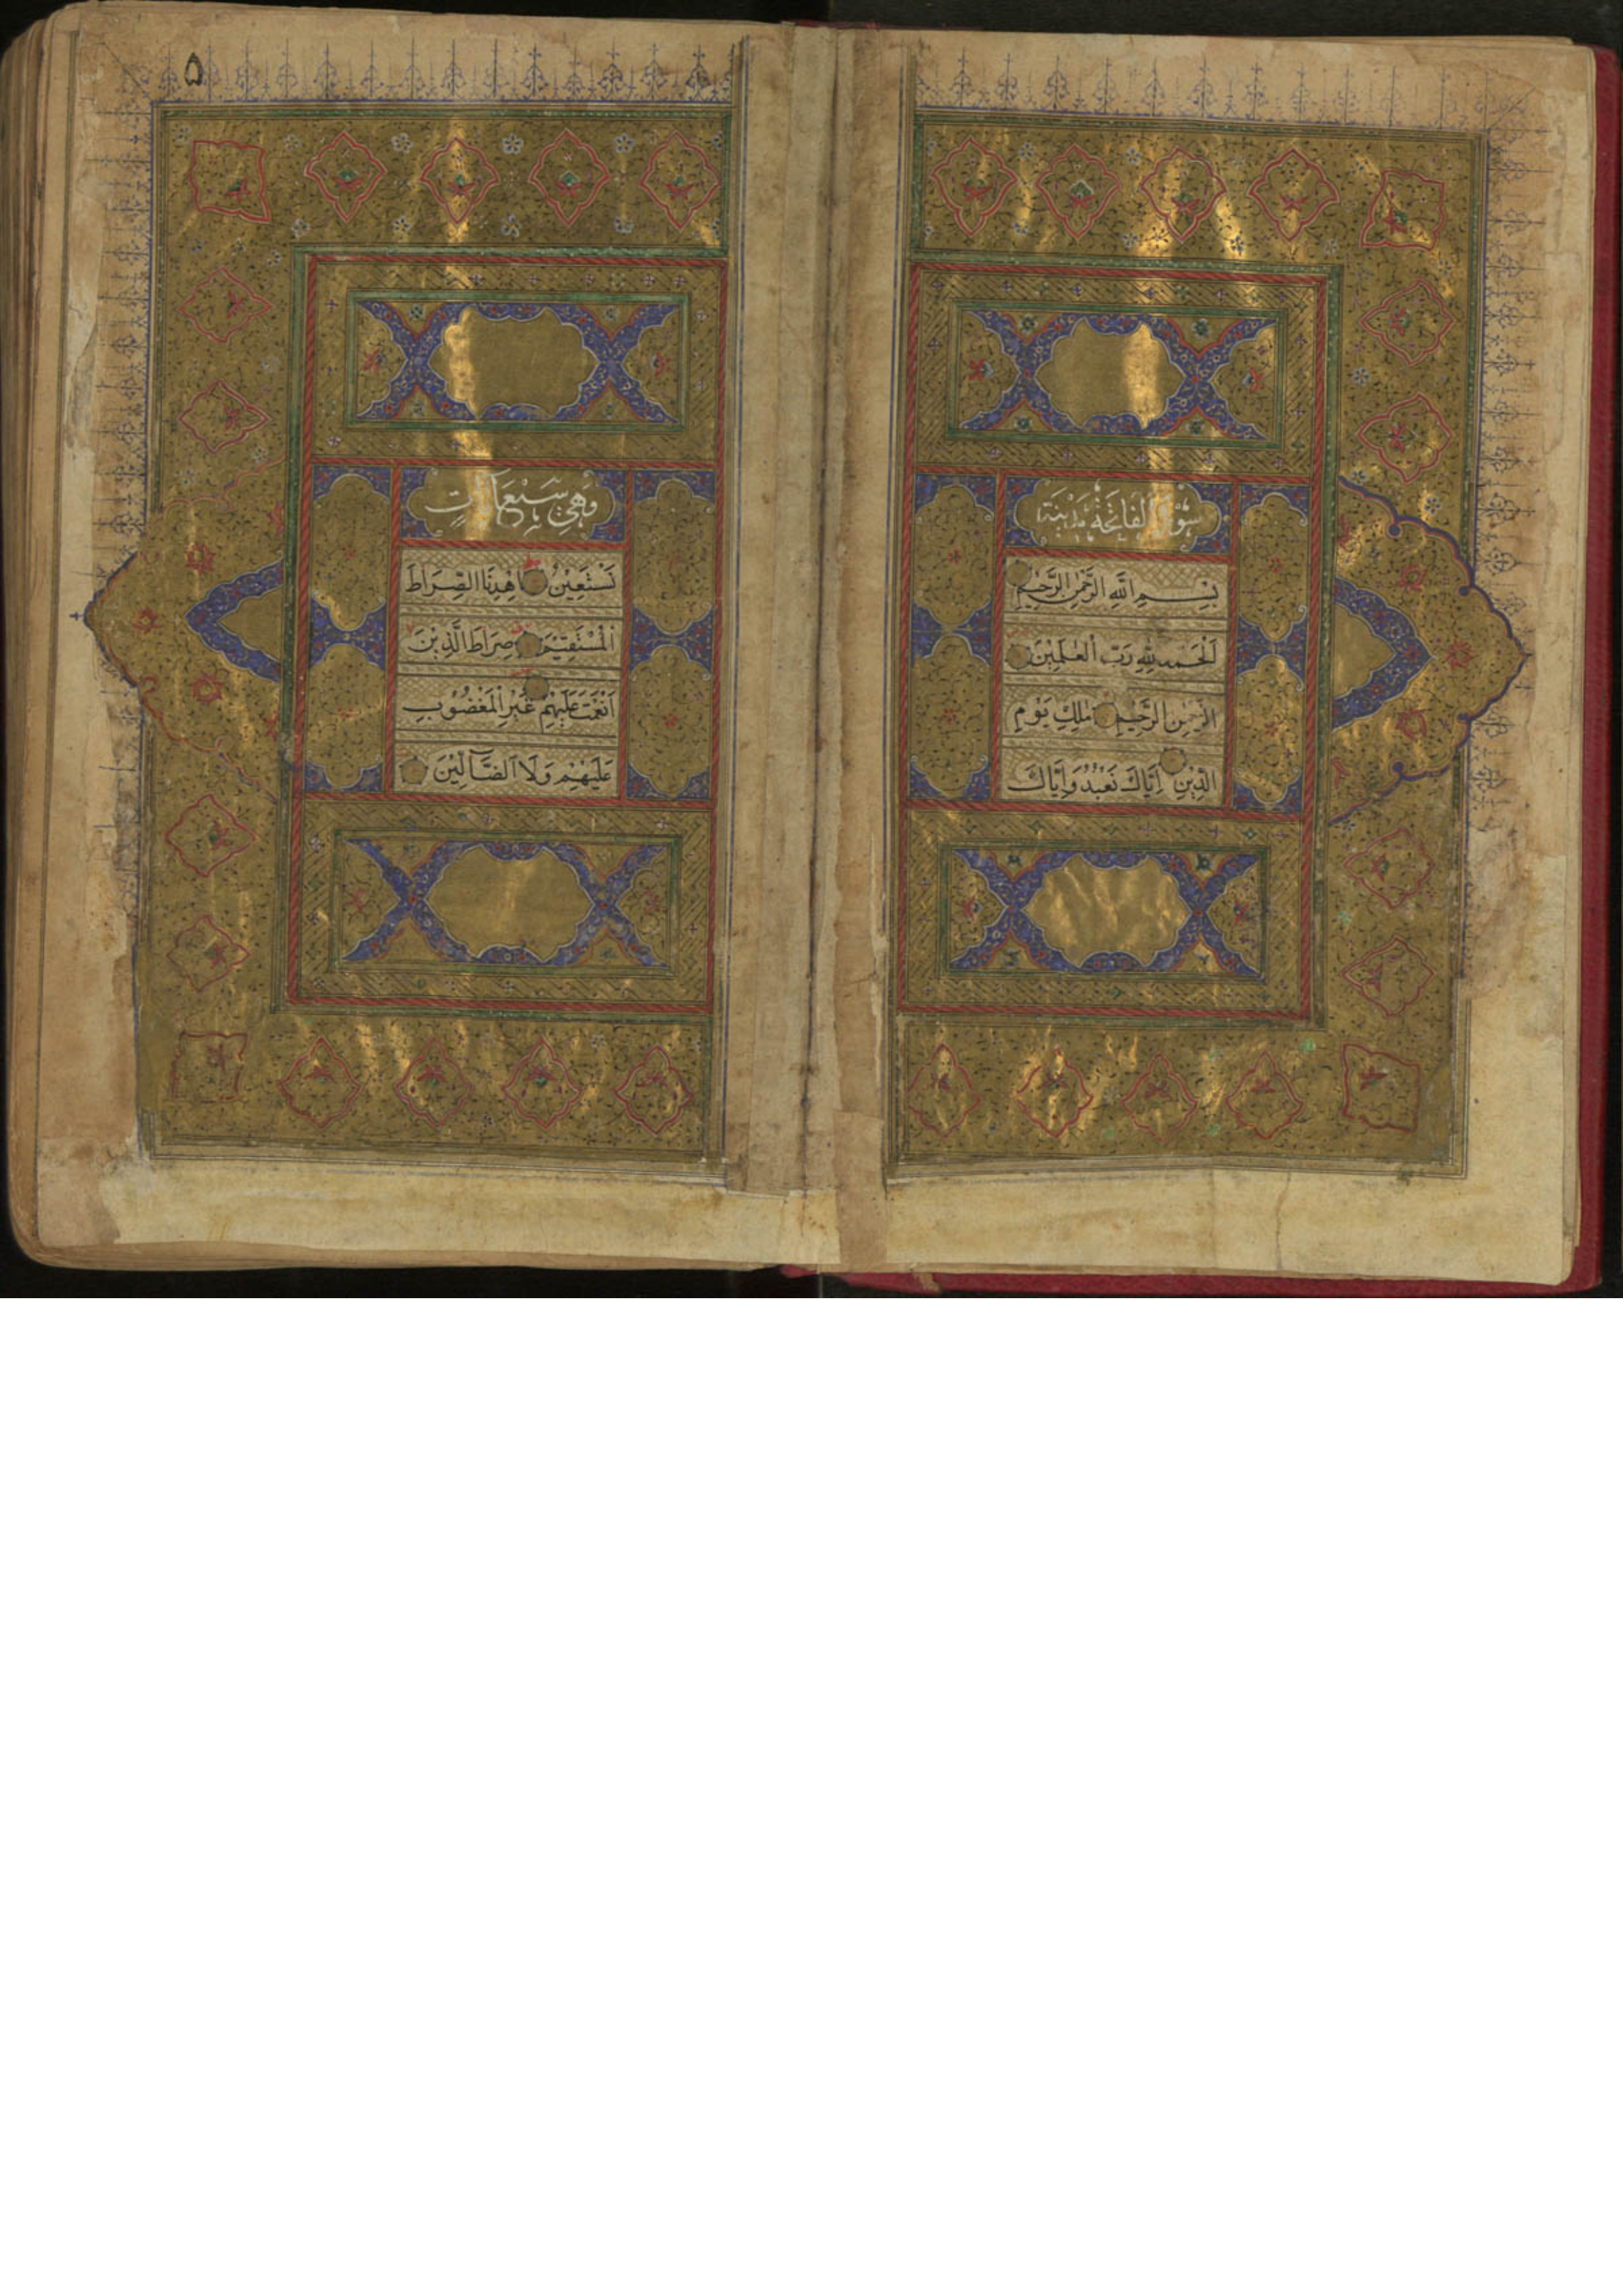 سورة الفاتحة مدنية
بِسْمِ اللّٰهِ الرَّحْمٰنِ الرَّحِيْمِ
اَلْحَمْدُ لِلّٰهِ رَبِّ الْعٰلَمِيْنَ
الرَّحْمٰنِ الرَّحِيْمِ مٰلِكِ يَوْمِ
الدِّيْنِ اِيَّاكَ نَعْبُدُ وَاِيَّاكَ
۵
وَهِيَ سَبْعُ اٰيَاتٍ
نَسْتَعِيْنُ اِهْدِنَا الصِّرَاطَ
الْمُسْتَقِيْمَ صِرَاطَ الَّذِيْنَ
اَنْعَمْتَ عَلَيْهِمْ غَيْرِ الْمَغْضُوْبِ
عَلَيْهِمْ وَلَا الضَّآلِّيْنَ